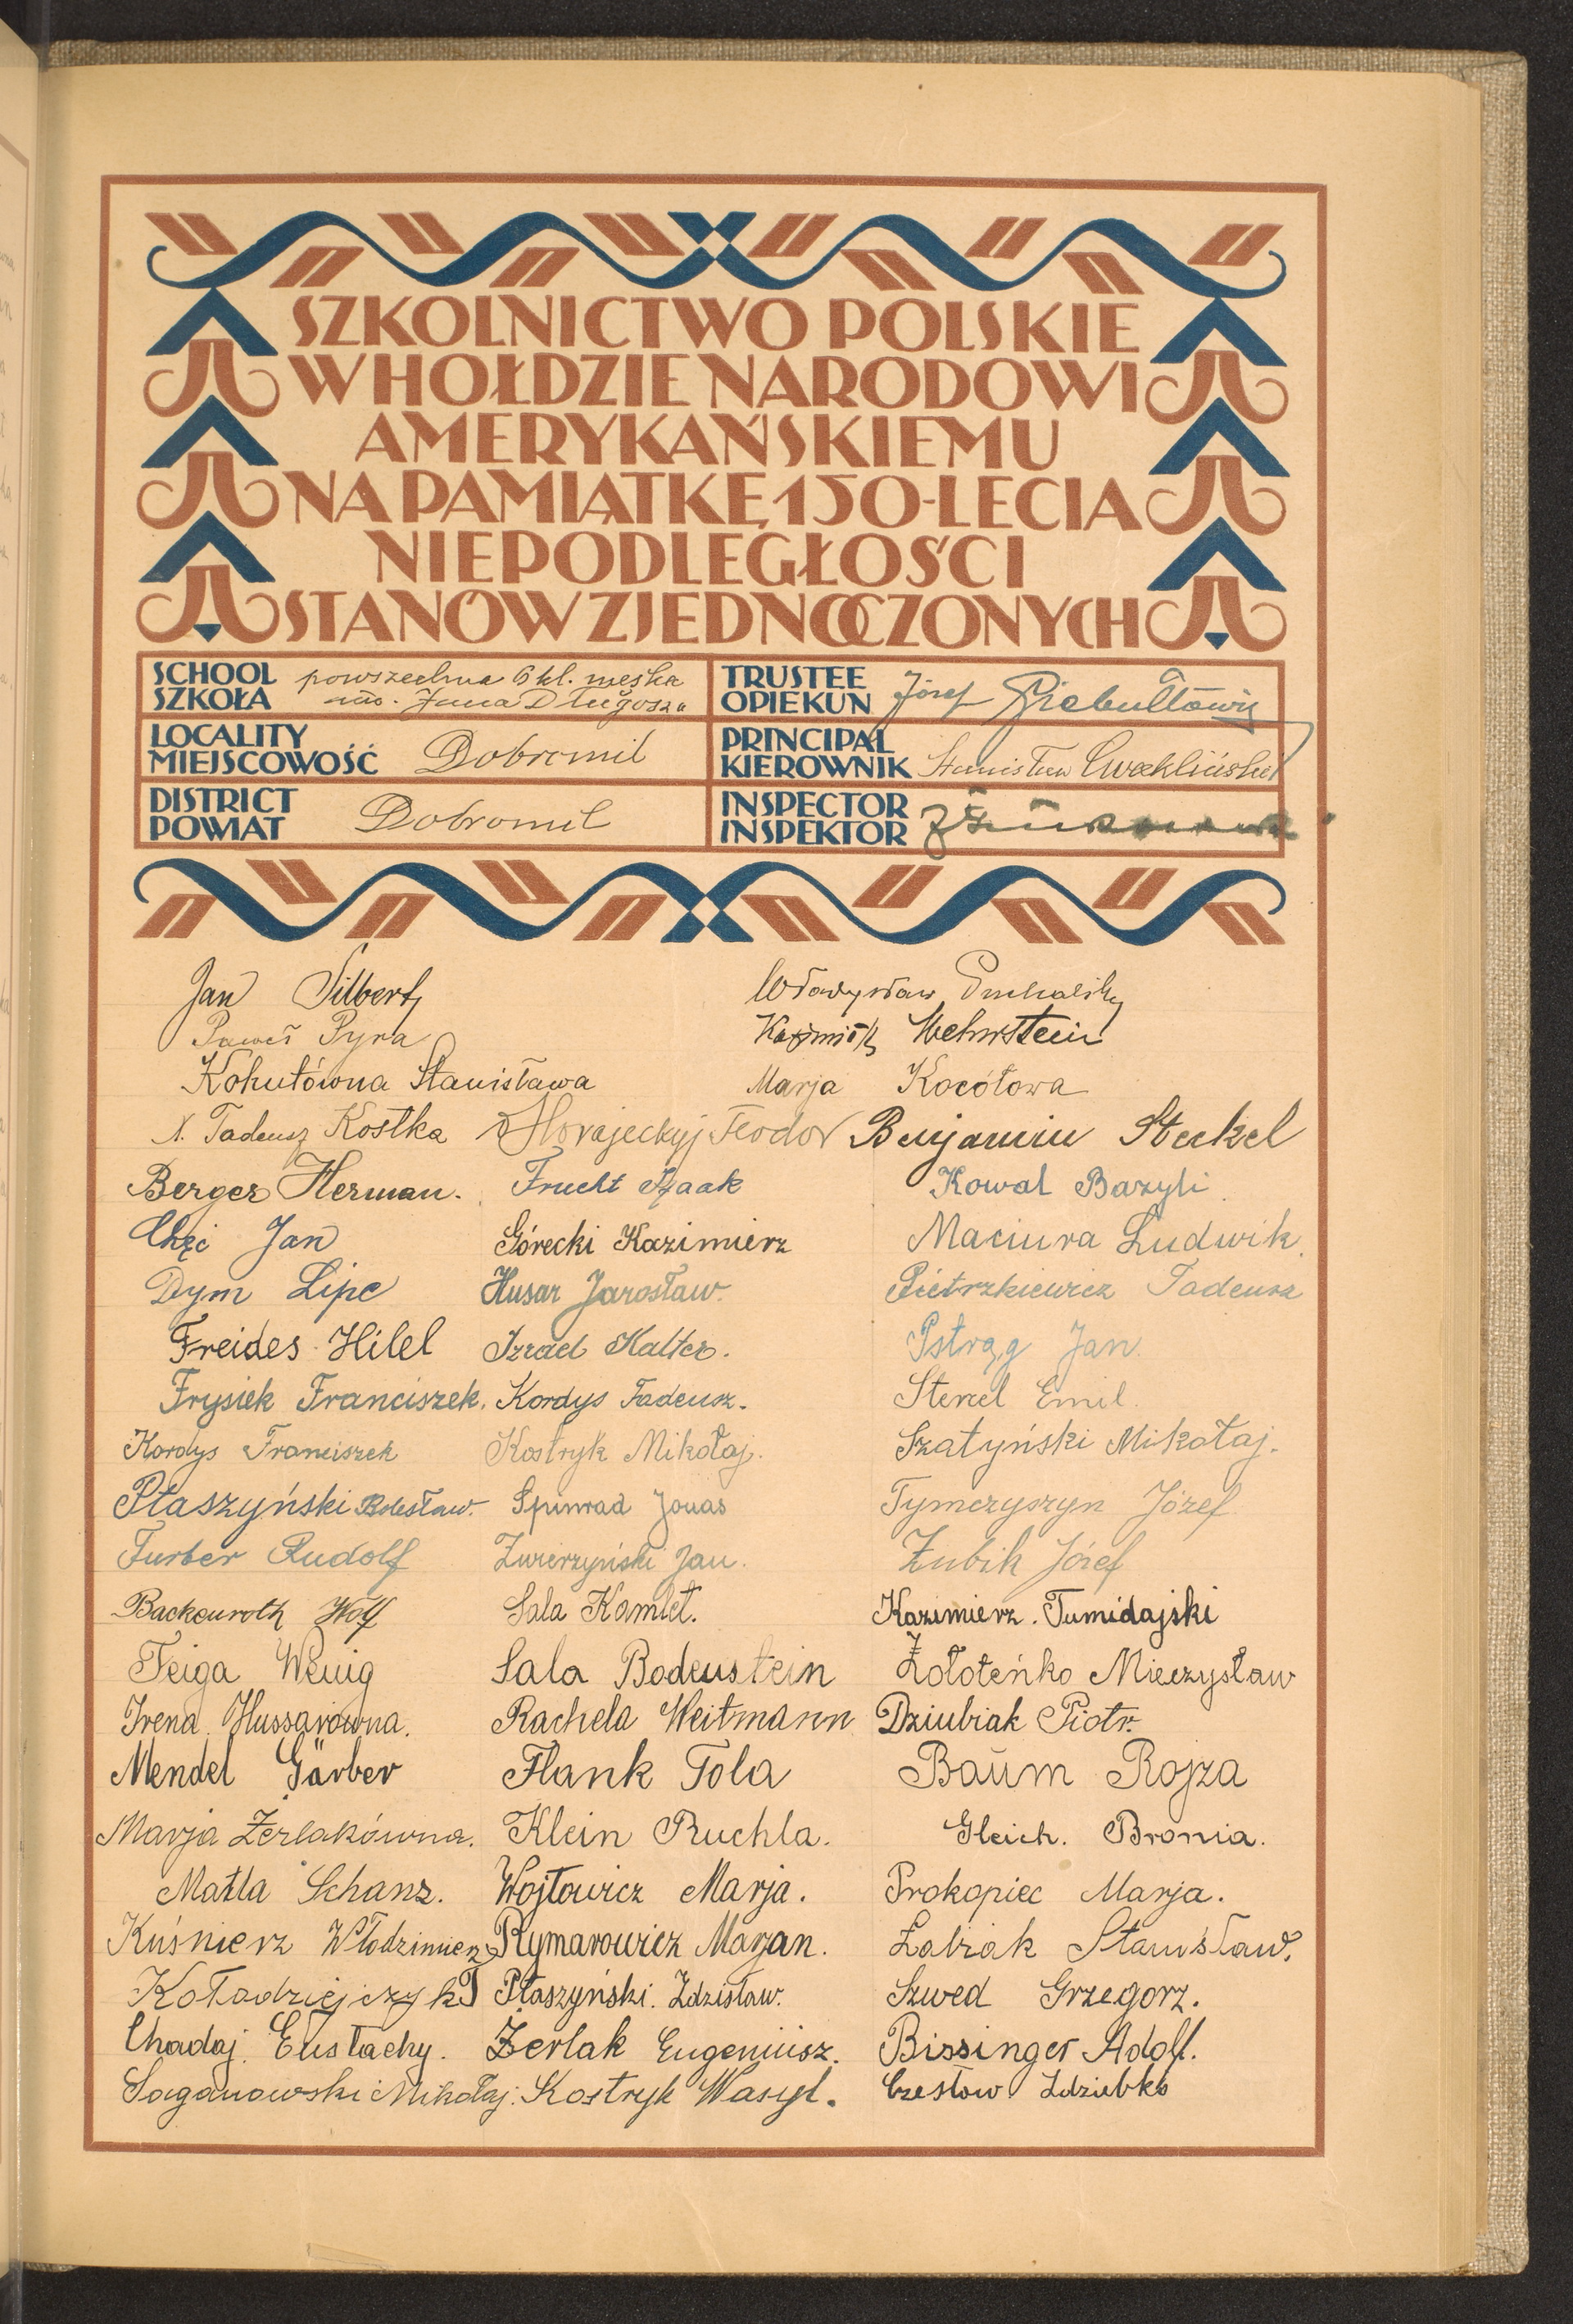 SZKOLNICTWO POLSKIE
W HOŁDZIE NARODOWI
AMERYKAŃSKIEMU
NA PAMIĄTKĘ 150-LECIA
NIEPODLEGŁOŚCI
STANÓW ZJEDNOCZONYCH
SCHOOL
SZKOŁA
powszechna 6 kl. męska
im. Jana Długosza
TRUSTEE
OPIEKUN
Józef Giebułtowicz
LOCALITY
MIEJSCOWOŚĆ
Dobromil
PRINCIPAL
KIEROWNIK
Stanisław Ćwikliński
DISTRICT
POWIAT
Dobromil
INSPECTOR
INSPEKTOR
Jan Silbert Władysław Puchalski
Paweł Pyra Kazimierz Wehrstein
Kohutówna Stanisława Marja Kocółowa
X. Tadeusz Kostka Horajeckyj Teodor Benjamin Steckel
Berger Herman. Frucht Izaak Kowal Bazyli
Chęć Jan Górecki Kazimierz Maciura Ludwik.
Dym Lipe Husar Jarosław. Pietrzkiewicz Tadeusz
Freides Hilel Izrael Kalter. Pstrąg Jan.
Frysiek Franciszek. Kordys Tadeusz. Stencel Emil.
Kordys Franciszek Kostryk Mikołaj. Szatyński Mikołaj.
Ptaszyński Bolesław. Spinrad Jonas Tymczyszyn Józef
Furber Rudolf Zwierzyński Jan. Zubik Józef
Backenroth Wolf Sala Kamlet. Kazimierz Tumidajski
Feiga Wenig Sala Bodenstein Żołoteńko Mieczysław
Irena Hussarówna. Rachela Weitmann Dziubiak Piotr.
Mendel Gärber Flank Tola Baum Rojza
Marja Żerlakówna. Klein Ruchla. Gleich. Bronia.
Matla Schanz. Wojtowicz Marja. Prokopiec Marja.
Kuśnierz Włodzimierz Rymarowicz Marjan. Łabiak Stanisław.
Kołodziejczyk J Ptaszyński. Zdzisław. Szwed Grzegorz.
Chadaj Eustachy. Żerlak Eugeniusz. Bissinger Adolf.
Saganowski Mikołaj. Kostryk Wasyl. Czesław Zdziebko